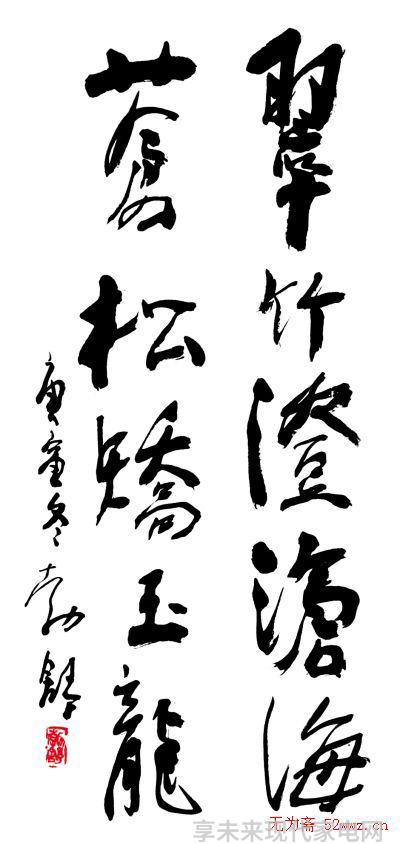 翠竹澄滄海
蒼松矯玉龍
庚寅冬
无为斋 52wwz.cn
享未来现代家电网